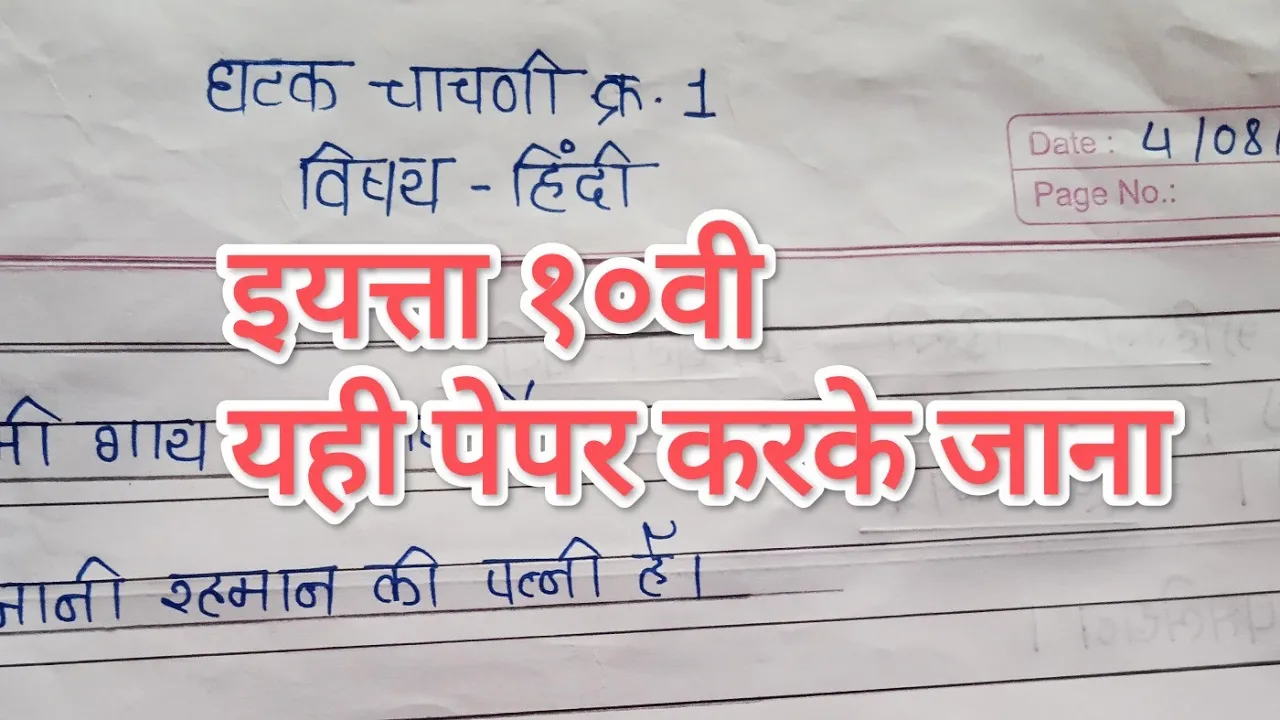 घटक चाचणी क्र. 1
विषय - हिंदी
Date : 4/08/
Page No.:
इयत्ता १०वी
यही पेपर करके जाना
गाय
रहमान की पत्नी हैं।